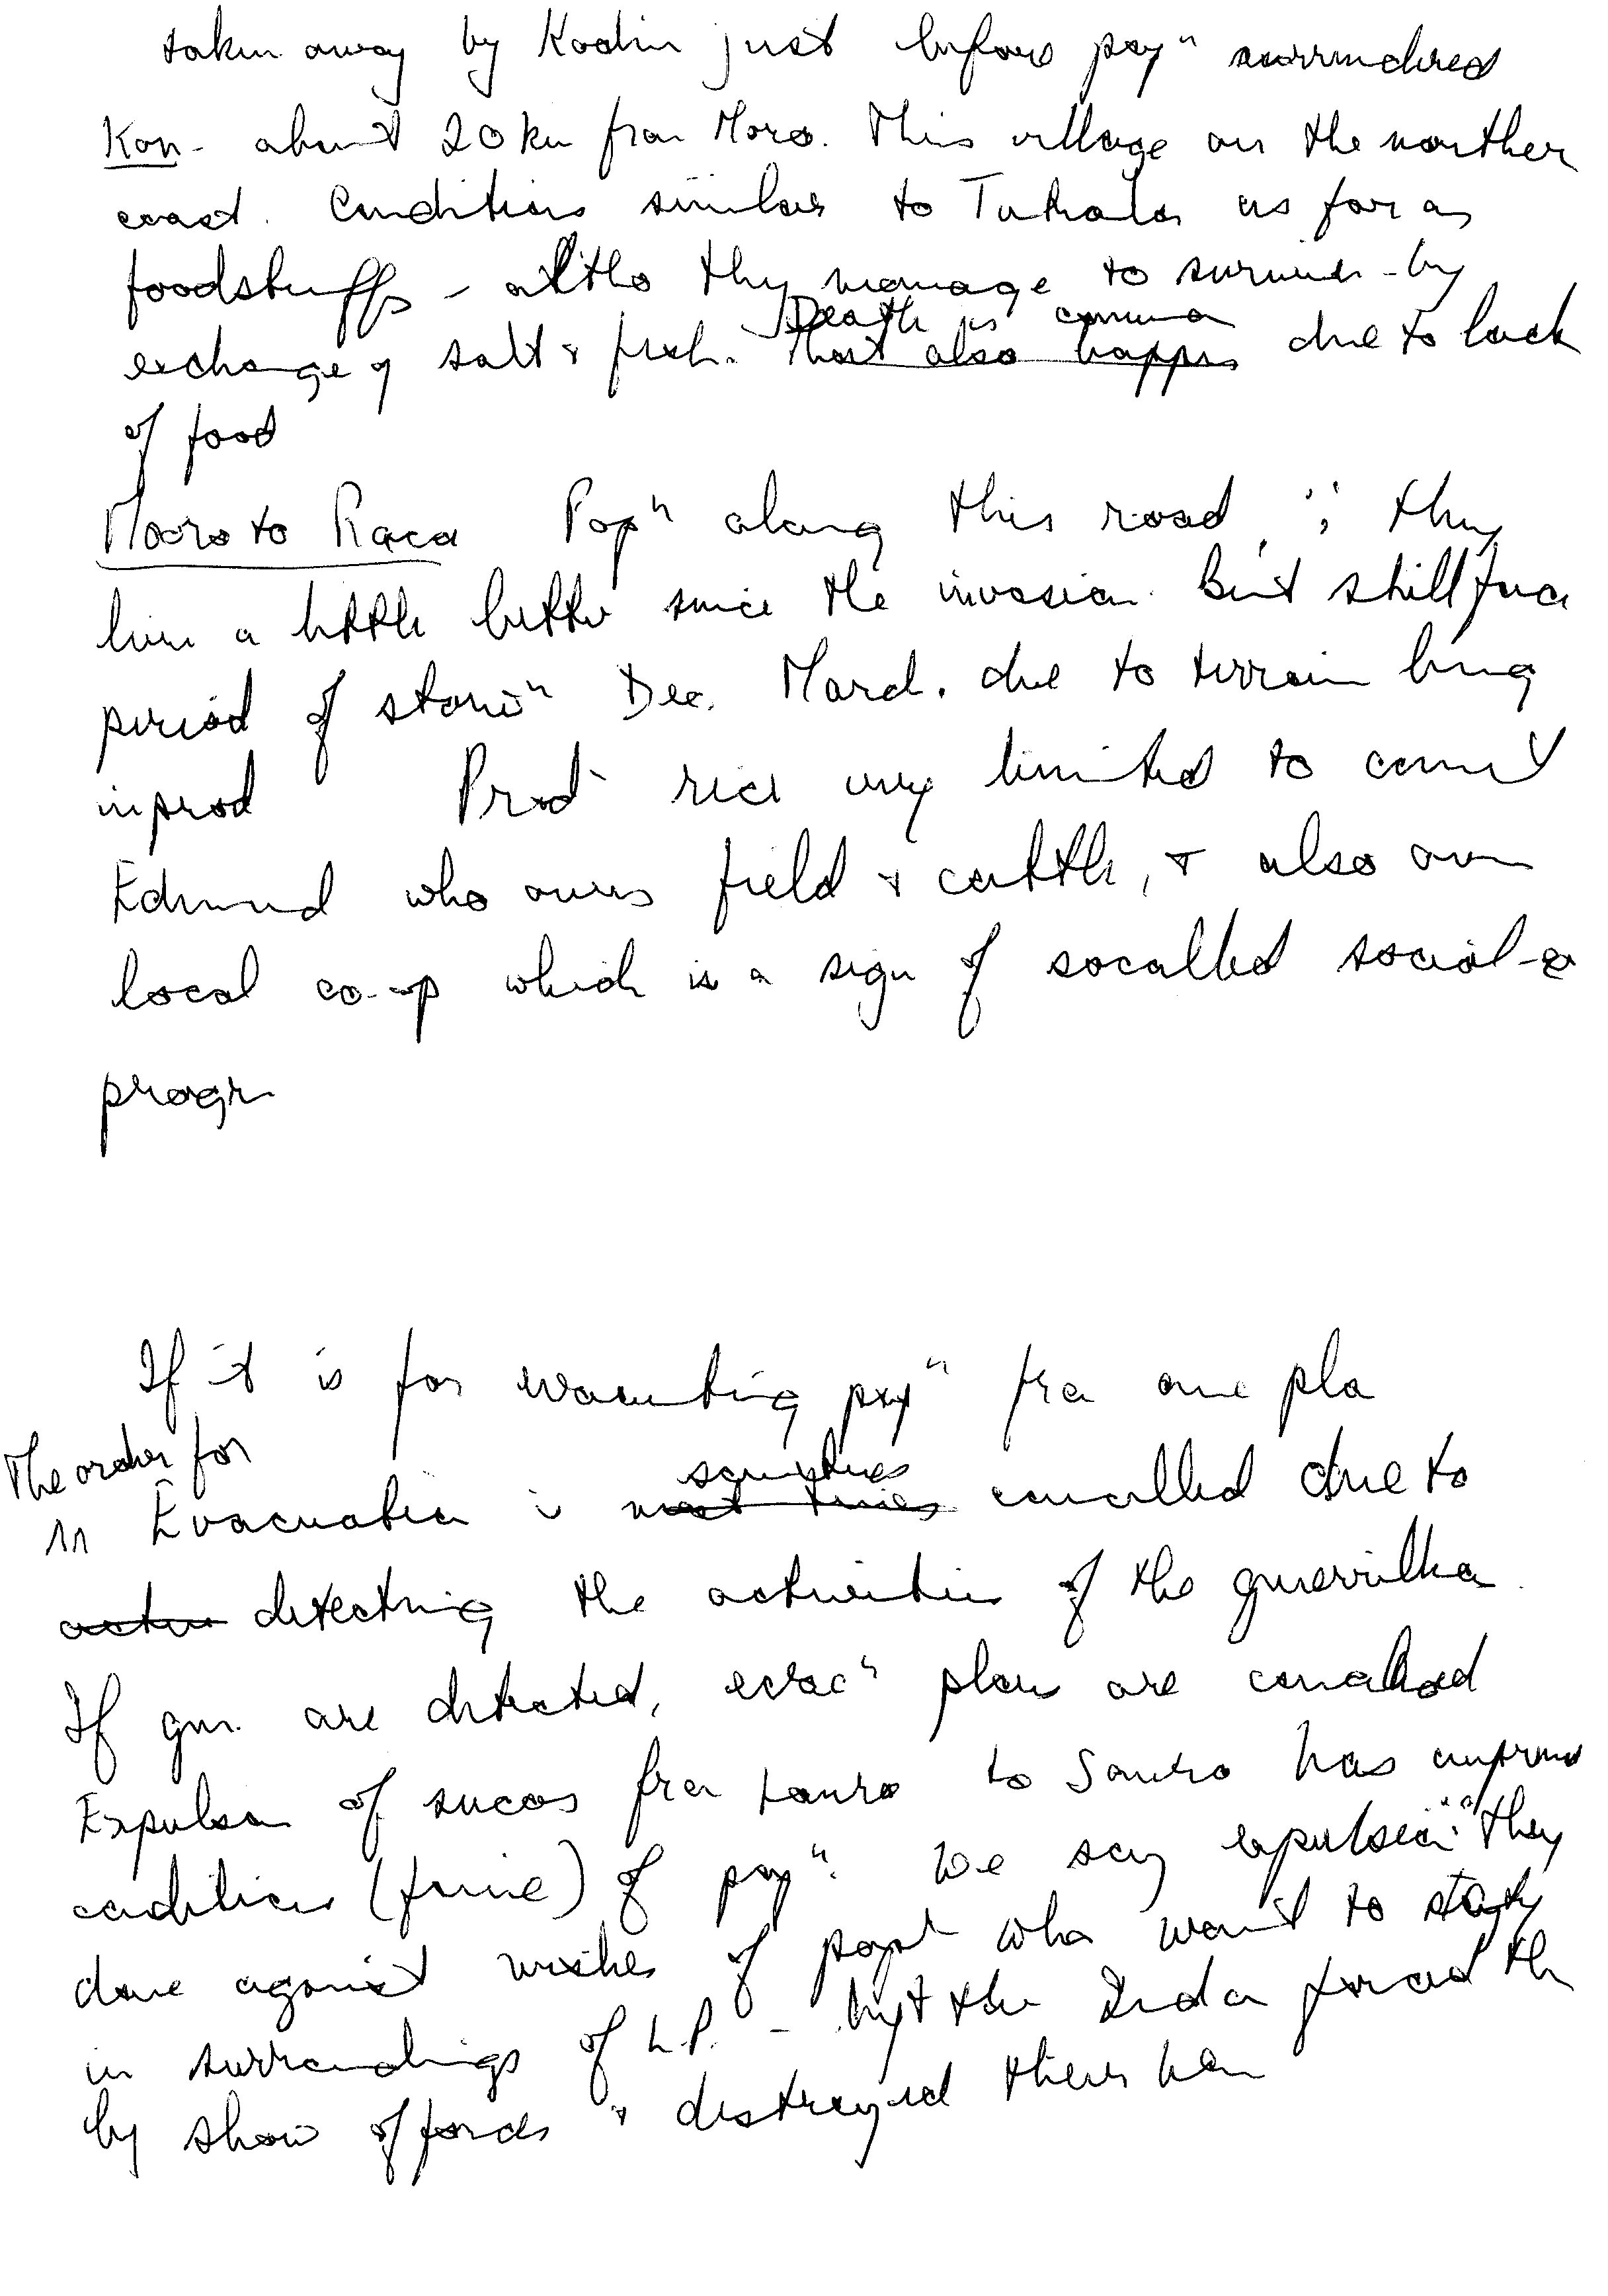 taken away by Kodim just before popⁿ surrendered
Kon - about 20 km from Moro. This village on the norther
coast. Conditions similar to Tutuala as far as
foodstuffs - altho they manage to survive - by
Death is common
exchange of salt & fish. That also happens due to lack
of food
Mooro to Raca Popⁿ along this road ; they
live a little better since the invasion. But still face
period of starvⁿ Dec. March. due to terrain being
inprod Prodⁿ rice very limited to
Edmund who owns field & cattle, & also own
local co-op which is a sign of socalled social-ec
progr
If it is for evacuating popⁿ fra one pla
The order for sometimes
Evacuation is most times cancelled due to
detecting the activities of the guerrilla.
If gu. are detected, evacⁿ plans are cancelled
Expulsion of sucos from Lauro to Souro has
conditions of popⁿ. We say expulsion "they
done against wishes of popⁿ who want to stay
in surroundings of L.P. - but the Indon forced th
by show of forces & destroyed their hom